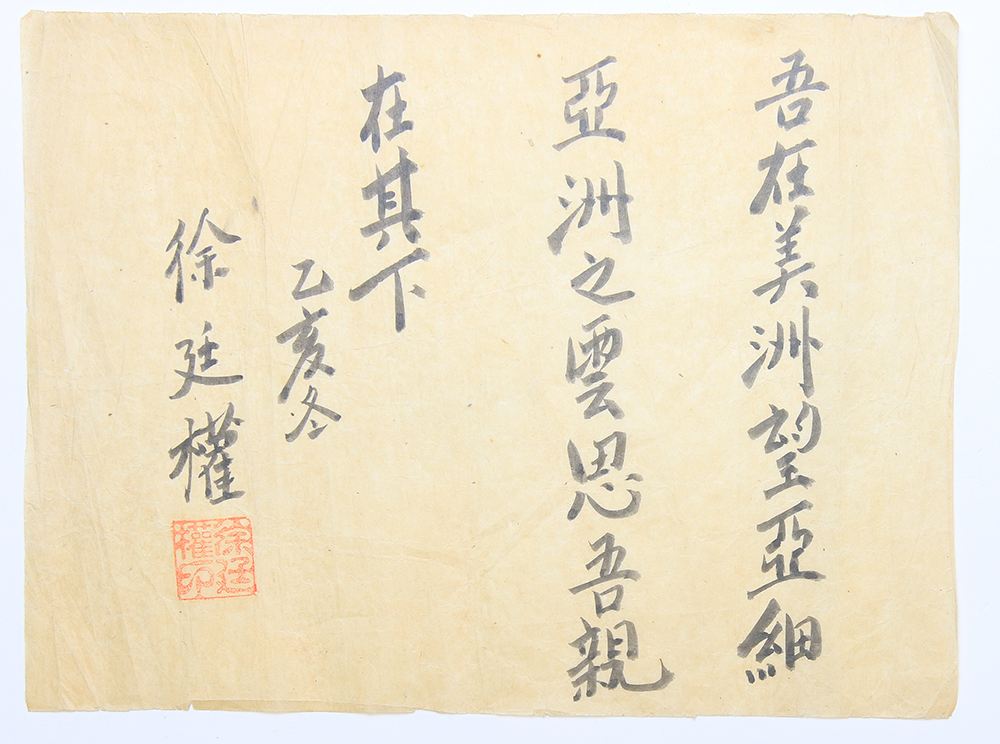 吾在美洲望亞細
亞洲之雲思吾親
在其下
乙亥冬
徐廷權
徐廷
權